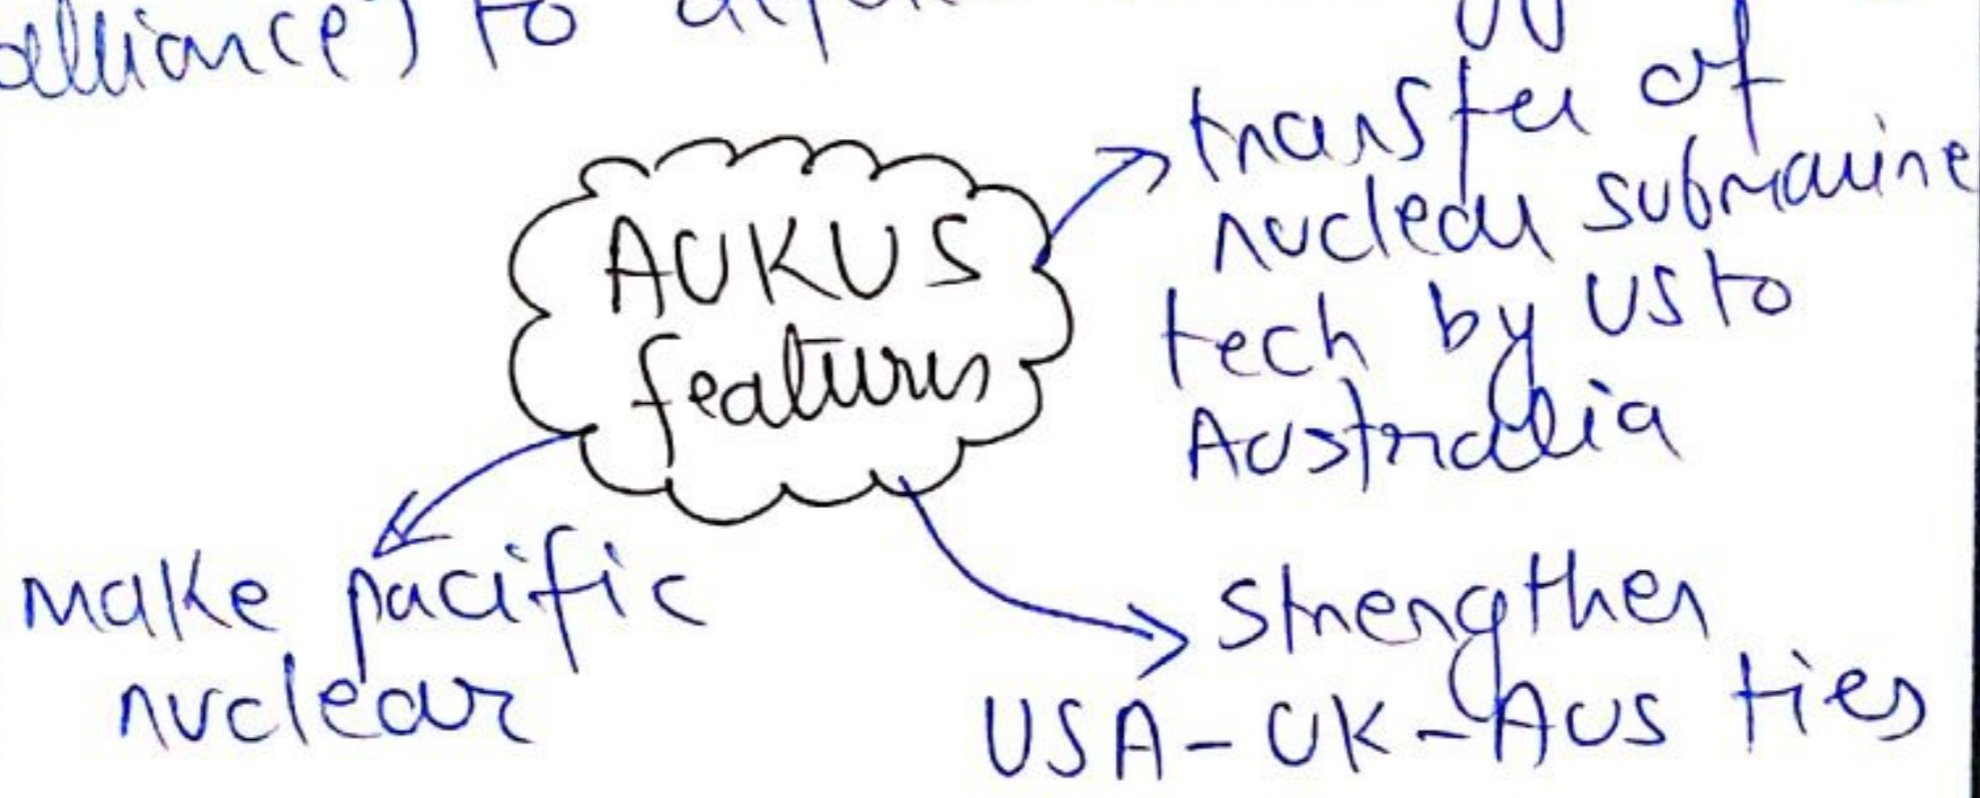 alliance) to
AUKUS
features
transfer of
nuclear submarine
tech by US to
Australia
make pacific
nuclear
strengthen
USA-UK-AUS ties